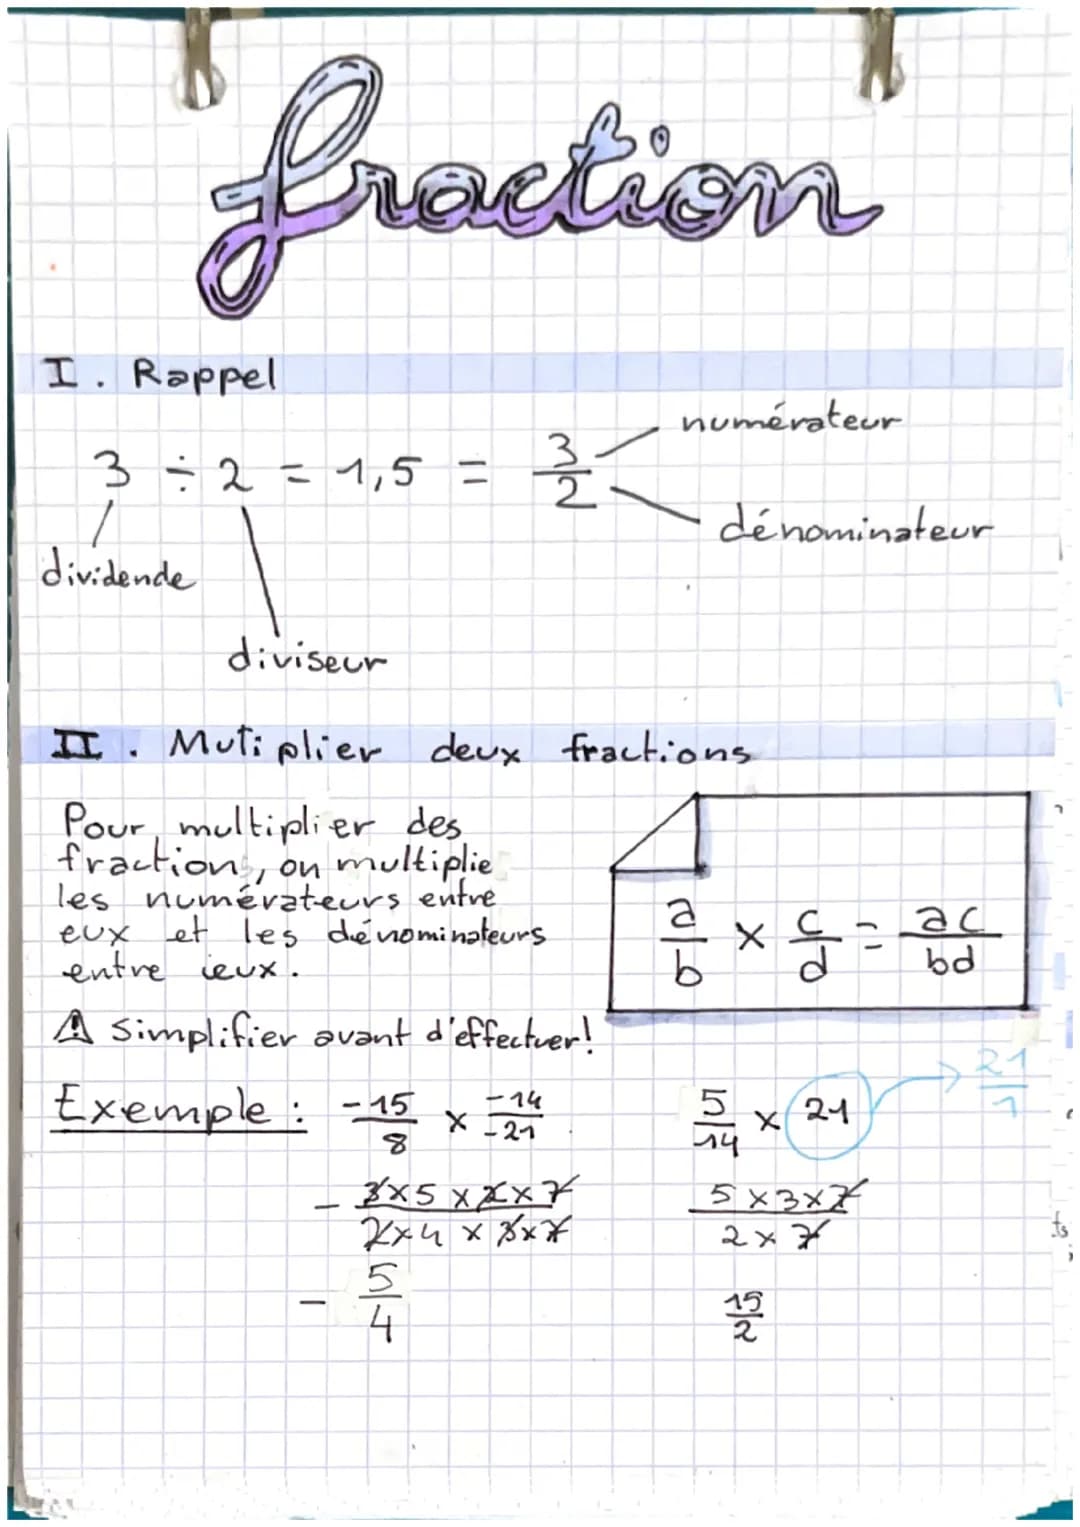 fraction
I. Rappel
3 ÷ 2 = 1,5 = 3/2
numérateur
dénominateur
dividende
diviseur
II. Mutiplier deux fractions
Pour multiplier des
fractions, on multiplie
les numérateurs entre
eux et les dénominateurs
entre eux.
a/b × c/d = ac/bd
⚠ Simplifier avant d'effectuer!
Exemple : -15/8 × -14/-21
5/14 × 21 → 21/1
- 3×5×2×7 / 2×4×3×7
5×3×7 / 2×7
- 5/4
15/2